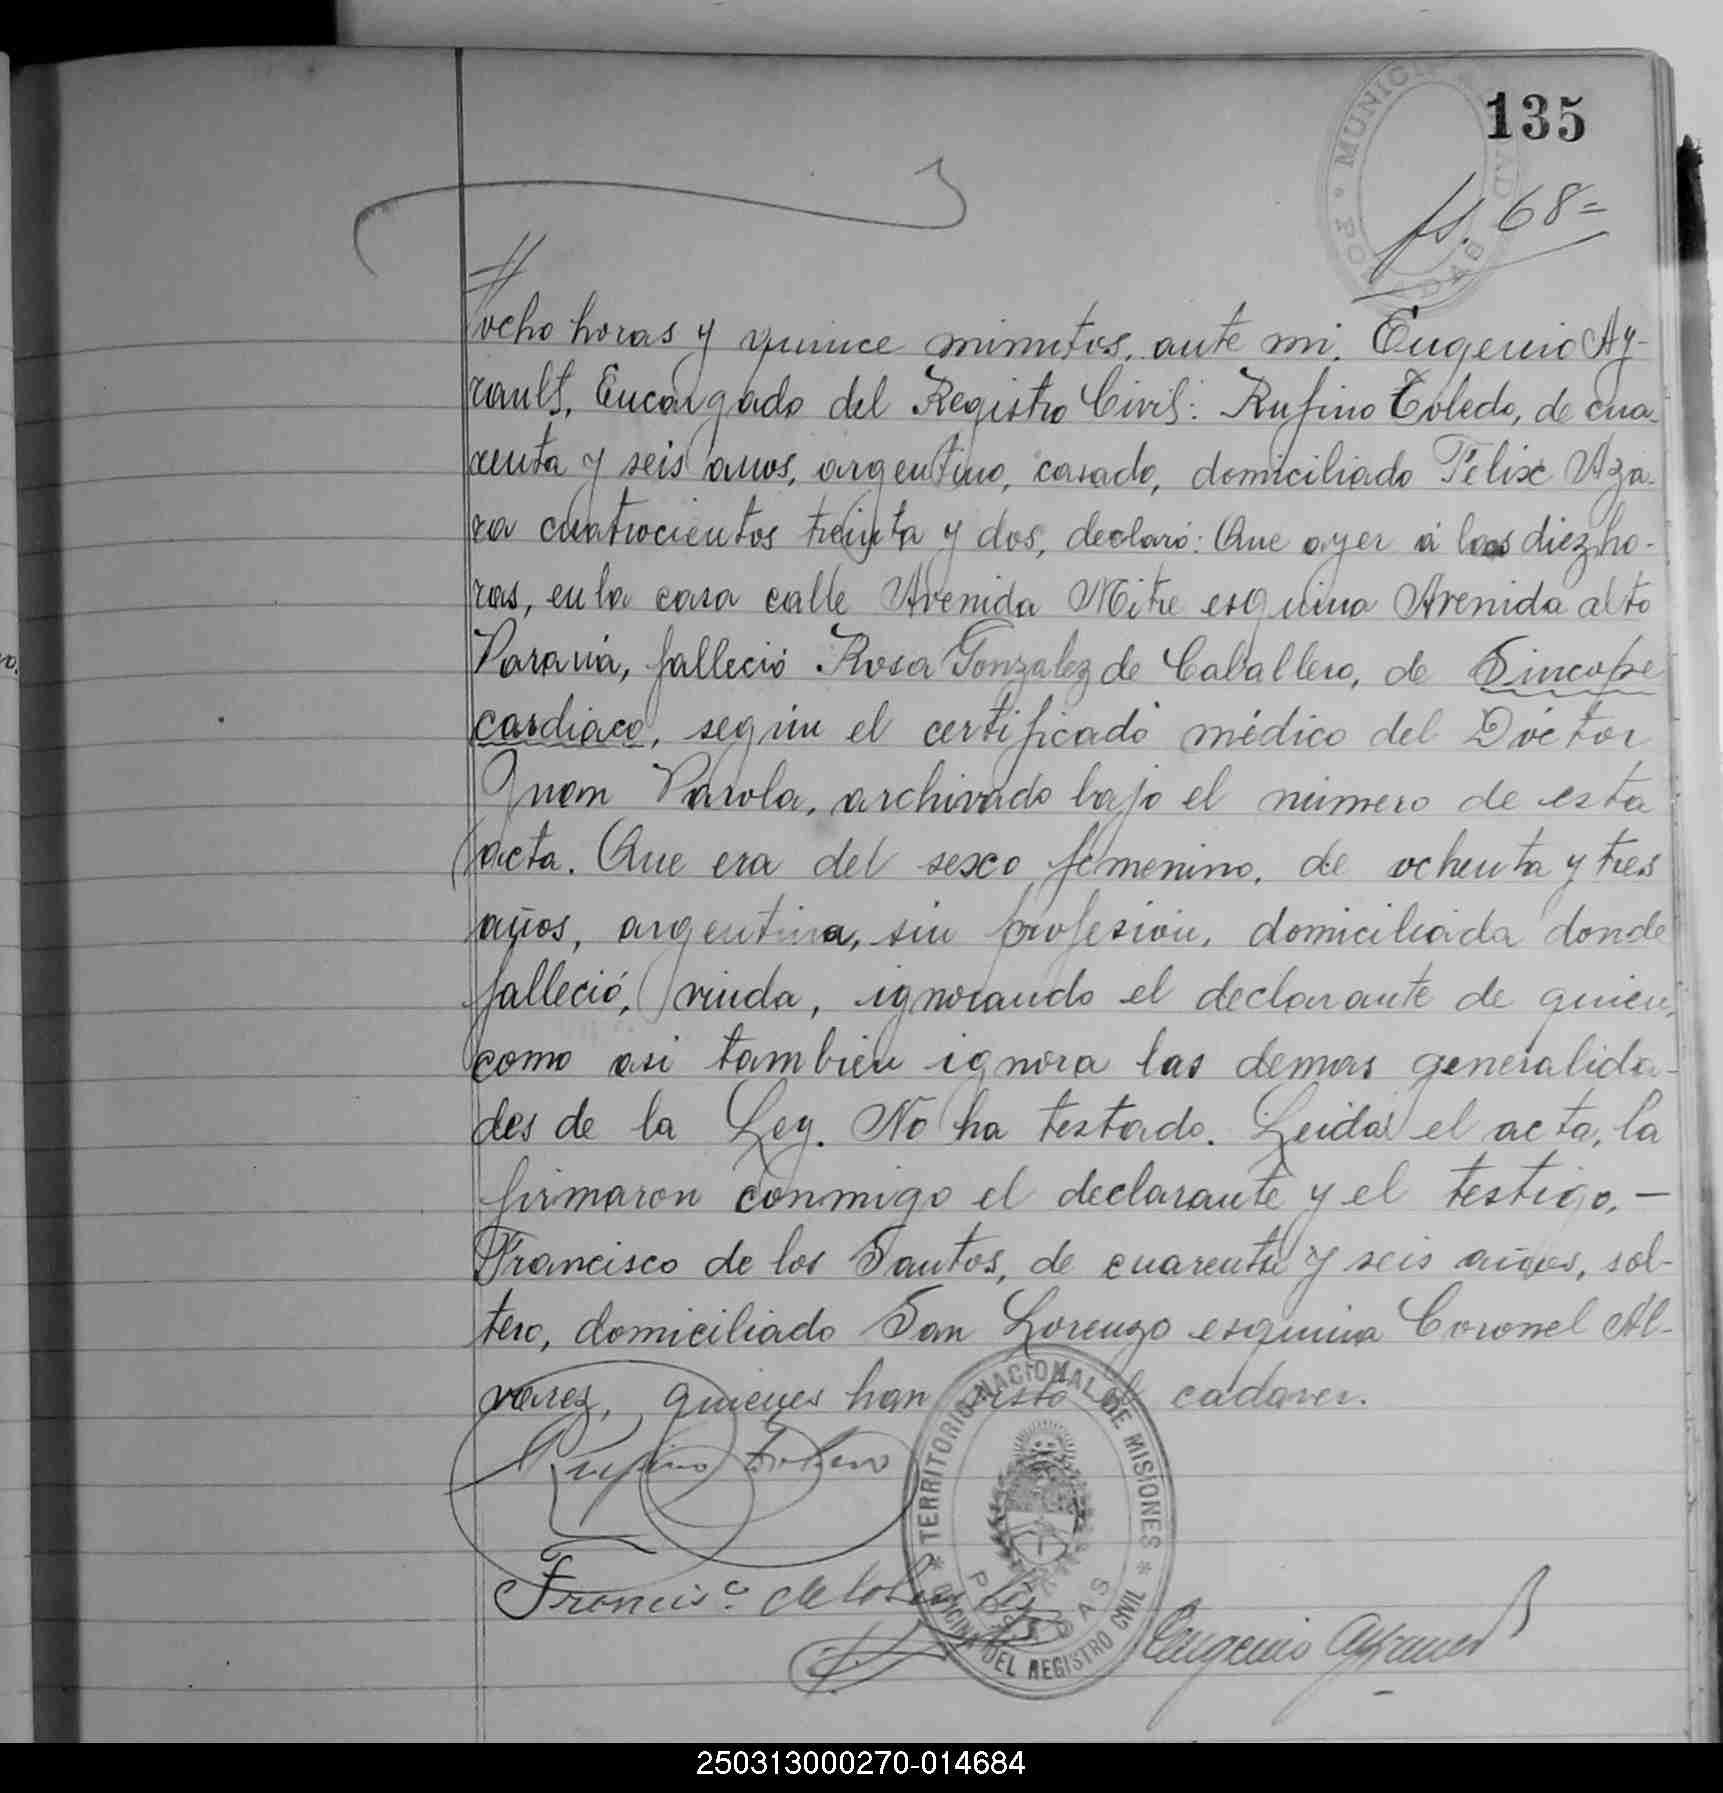 135
MUNICIPALIDAD
POSADAS
fs. 68=
ocho horas y quince minutos, ante mi, Eugenio Ay-
rault, Encargado del Registro Civil: Rufino Toledo, de cua-
renta y seis anos, argentino, casado, domiciliado Felix Aza-
ra cuatrocientos treinta y dos, declaró: Que ayer á las diez ho-
ras, en la casa calle Avenida Mitre esquina Avenida alto
Paraná, falleció Rosa Gonzalez de Caballero, de Sincope
cardiaco, según el certificado médico del Doctor
Juan Parola, archivado bajo el número de esta
acta. Que era del sexo femenino, de ochenta y tres
años, argentina, sin profesión, domiciliada donde
falleció, viuda, ignorando el declarante de quien,
como asi tambien ignora las demas generalida-
des de la Ley. No ha testado. Leida el acta, la
firmaron conmigo el declarante y el testigo, —
Francisco de los Santos, de cuarenta y seis años, sol-
tero, domiciliado San Lorenzo esquina Coronel Al-
varez, quienes han visto el cadaver.
Rufino Toledo
TERRITORIO NACIONAL DE MISIONES
POSADAS
OFICINA DEL REGISTRO CIVIL
Francisco de los
Eugenio Ayrault
250313000270-014684